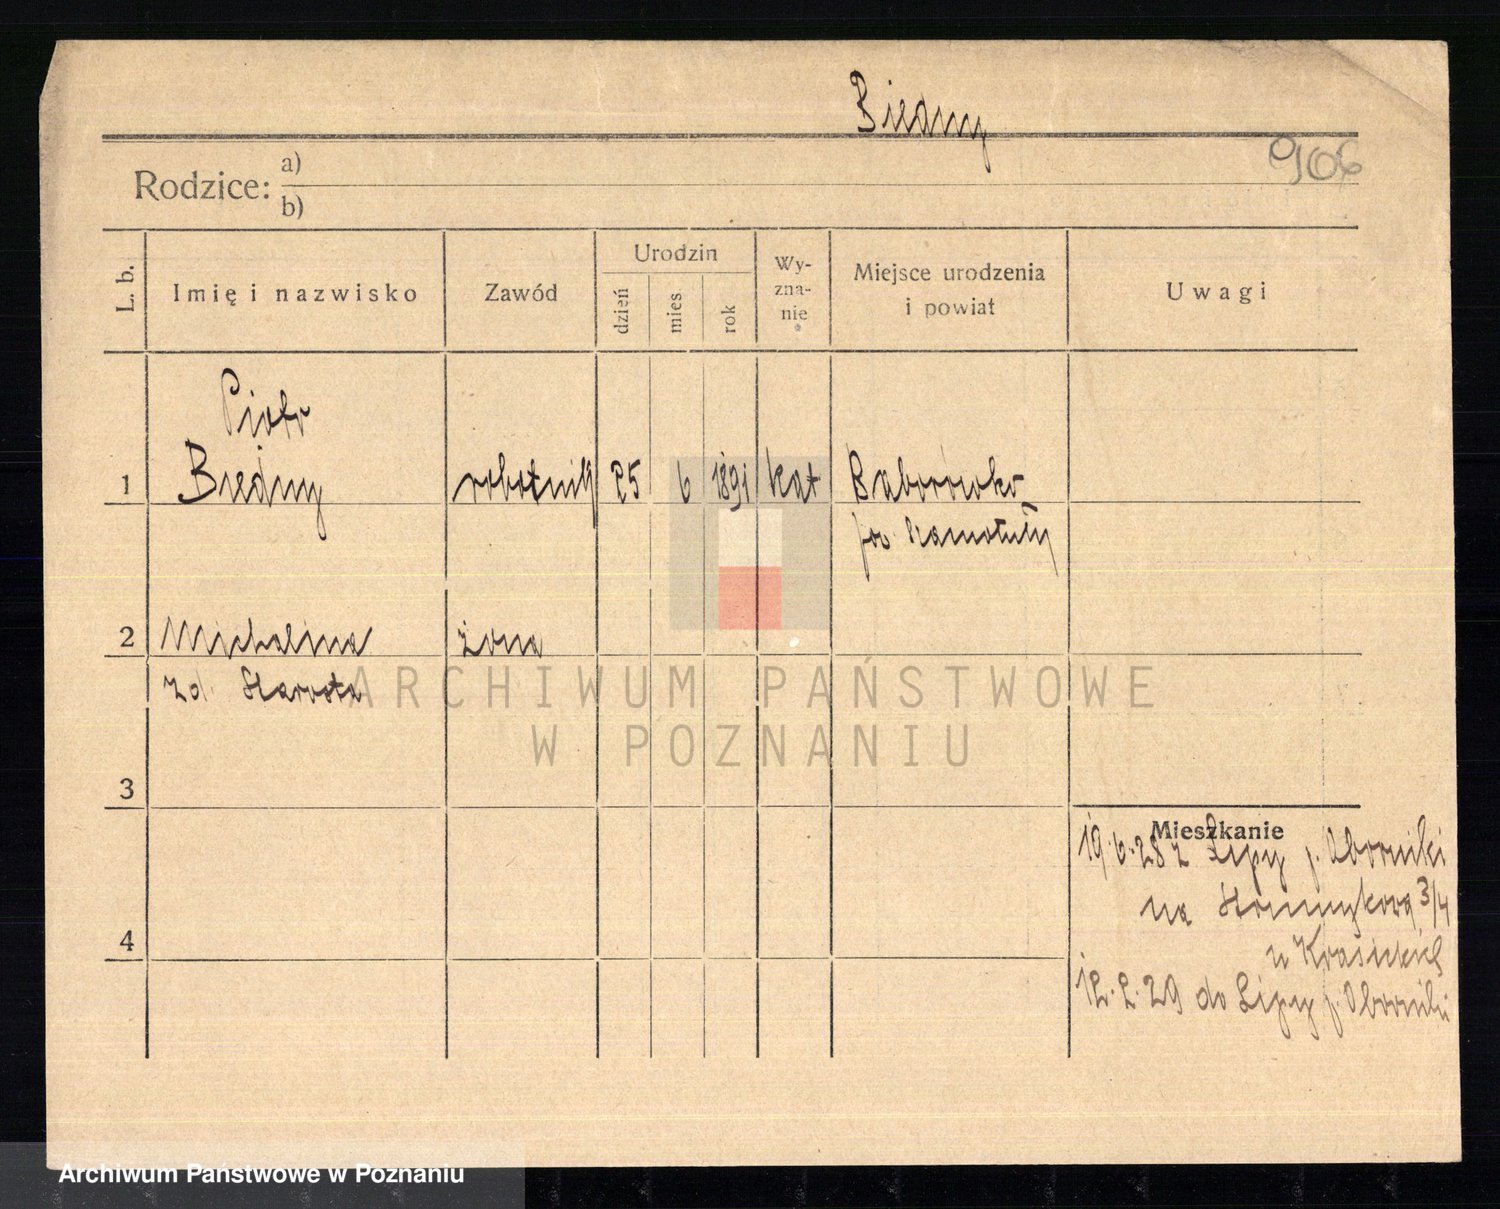 Biedny
906
Rodzice: a)
b)
L. b.
Imię i nazwisko
Zawód
Urodzin
dzień
mies
rok
Wy-
zna-
nie
Miejsce urodzenia
i powiat
Uwagi
Piotr
1 Biedny robotnik 25 6 1891 kat Baborówko
pow. Szamotuły
2 Michalina żona
zd. Starosta
ARCHIWUM PAŃSTWOWE
W POZNANIU
3
Mieszkanie
19.6.28 z Lipy p. Oborniki
na 3/4
4
u Krasickich
12.2.29 do Lipy p. Oborniki
Archiwum Państwowe w Poznaniu